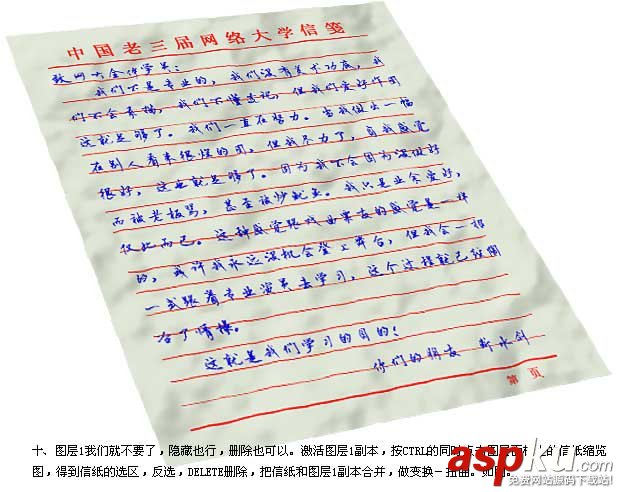 中国老三届网络大学信笺
致网大全体学员：
我们不是专业的，我们没有美术功底，我
们不会素描，我们不懂速记，但我们爱好作图
这就足够了。我们一直在努力。当我做出一幅
在别人看来很烂的图，但我尽力了，自我感觉
很好，这也就足够了。因为我不会因为没做好
而被老板骂，甚至被炒鱿鱼。我只是业余爱好，
仅此而已。这种感觉跟戏曲票友的感觉是一样
的，或许我永远没机会登上舞台，但我会一招
一式跟着专业演员去学习，这个过程就已经陶
冶了情操。
这就是我们学习的目的！
你们的朋友
第 页
十、图层1我们就不要了，隐藏也行，删除也可以。激活图层1副本，按CTRL的同时点击图层面板上的信纸缩览
图，得到信纸的选区，反选，DELETE删除，把信纸和图层1副本合并，做变换－扭曲。如图。
aspku.com
免费网站源码下载站!